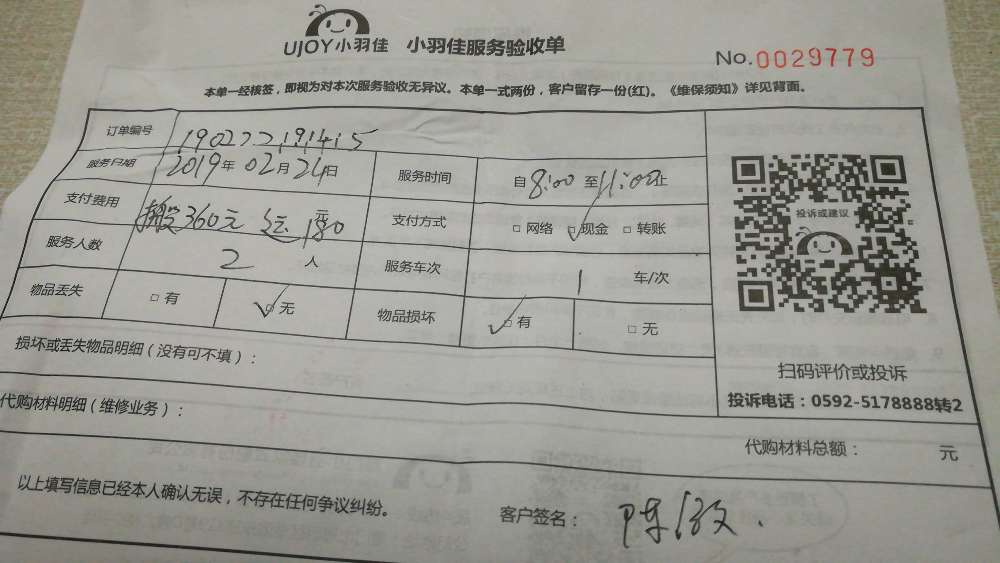 UJOY小羽佳 小羽佳服务验收单
No.0029779
本单一经核签，即视为对本次服务验收无异议。本单一式两份，客户留存一份(红)。《维保须知》详见背面。
订单编号 190222191415
服务日期 2019年 02月 24日 服务时间 自8:00 至11:00止
支付费用 搬 360元 180元 支付方式 □ 网络 ☑ 现金 □ 转账
服务人数 2 人 服务车次 1 车/次
物品丢失 □ 有 ☑ 无 物品损坏 ☑ 有 □ 无
损坏或丢失物品明细（没有可不填）：
代购材料明细（维修业务）：
代购材料总额： 元
以上填写信息已经本人确认无误，不存在任何争议纠纷。
客户签名： 陈
投诉或建议
扫码评价或投诉
投诉电话：0592-5178888转2